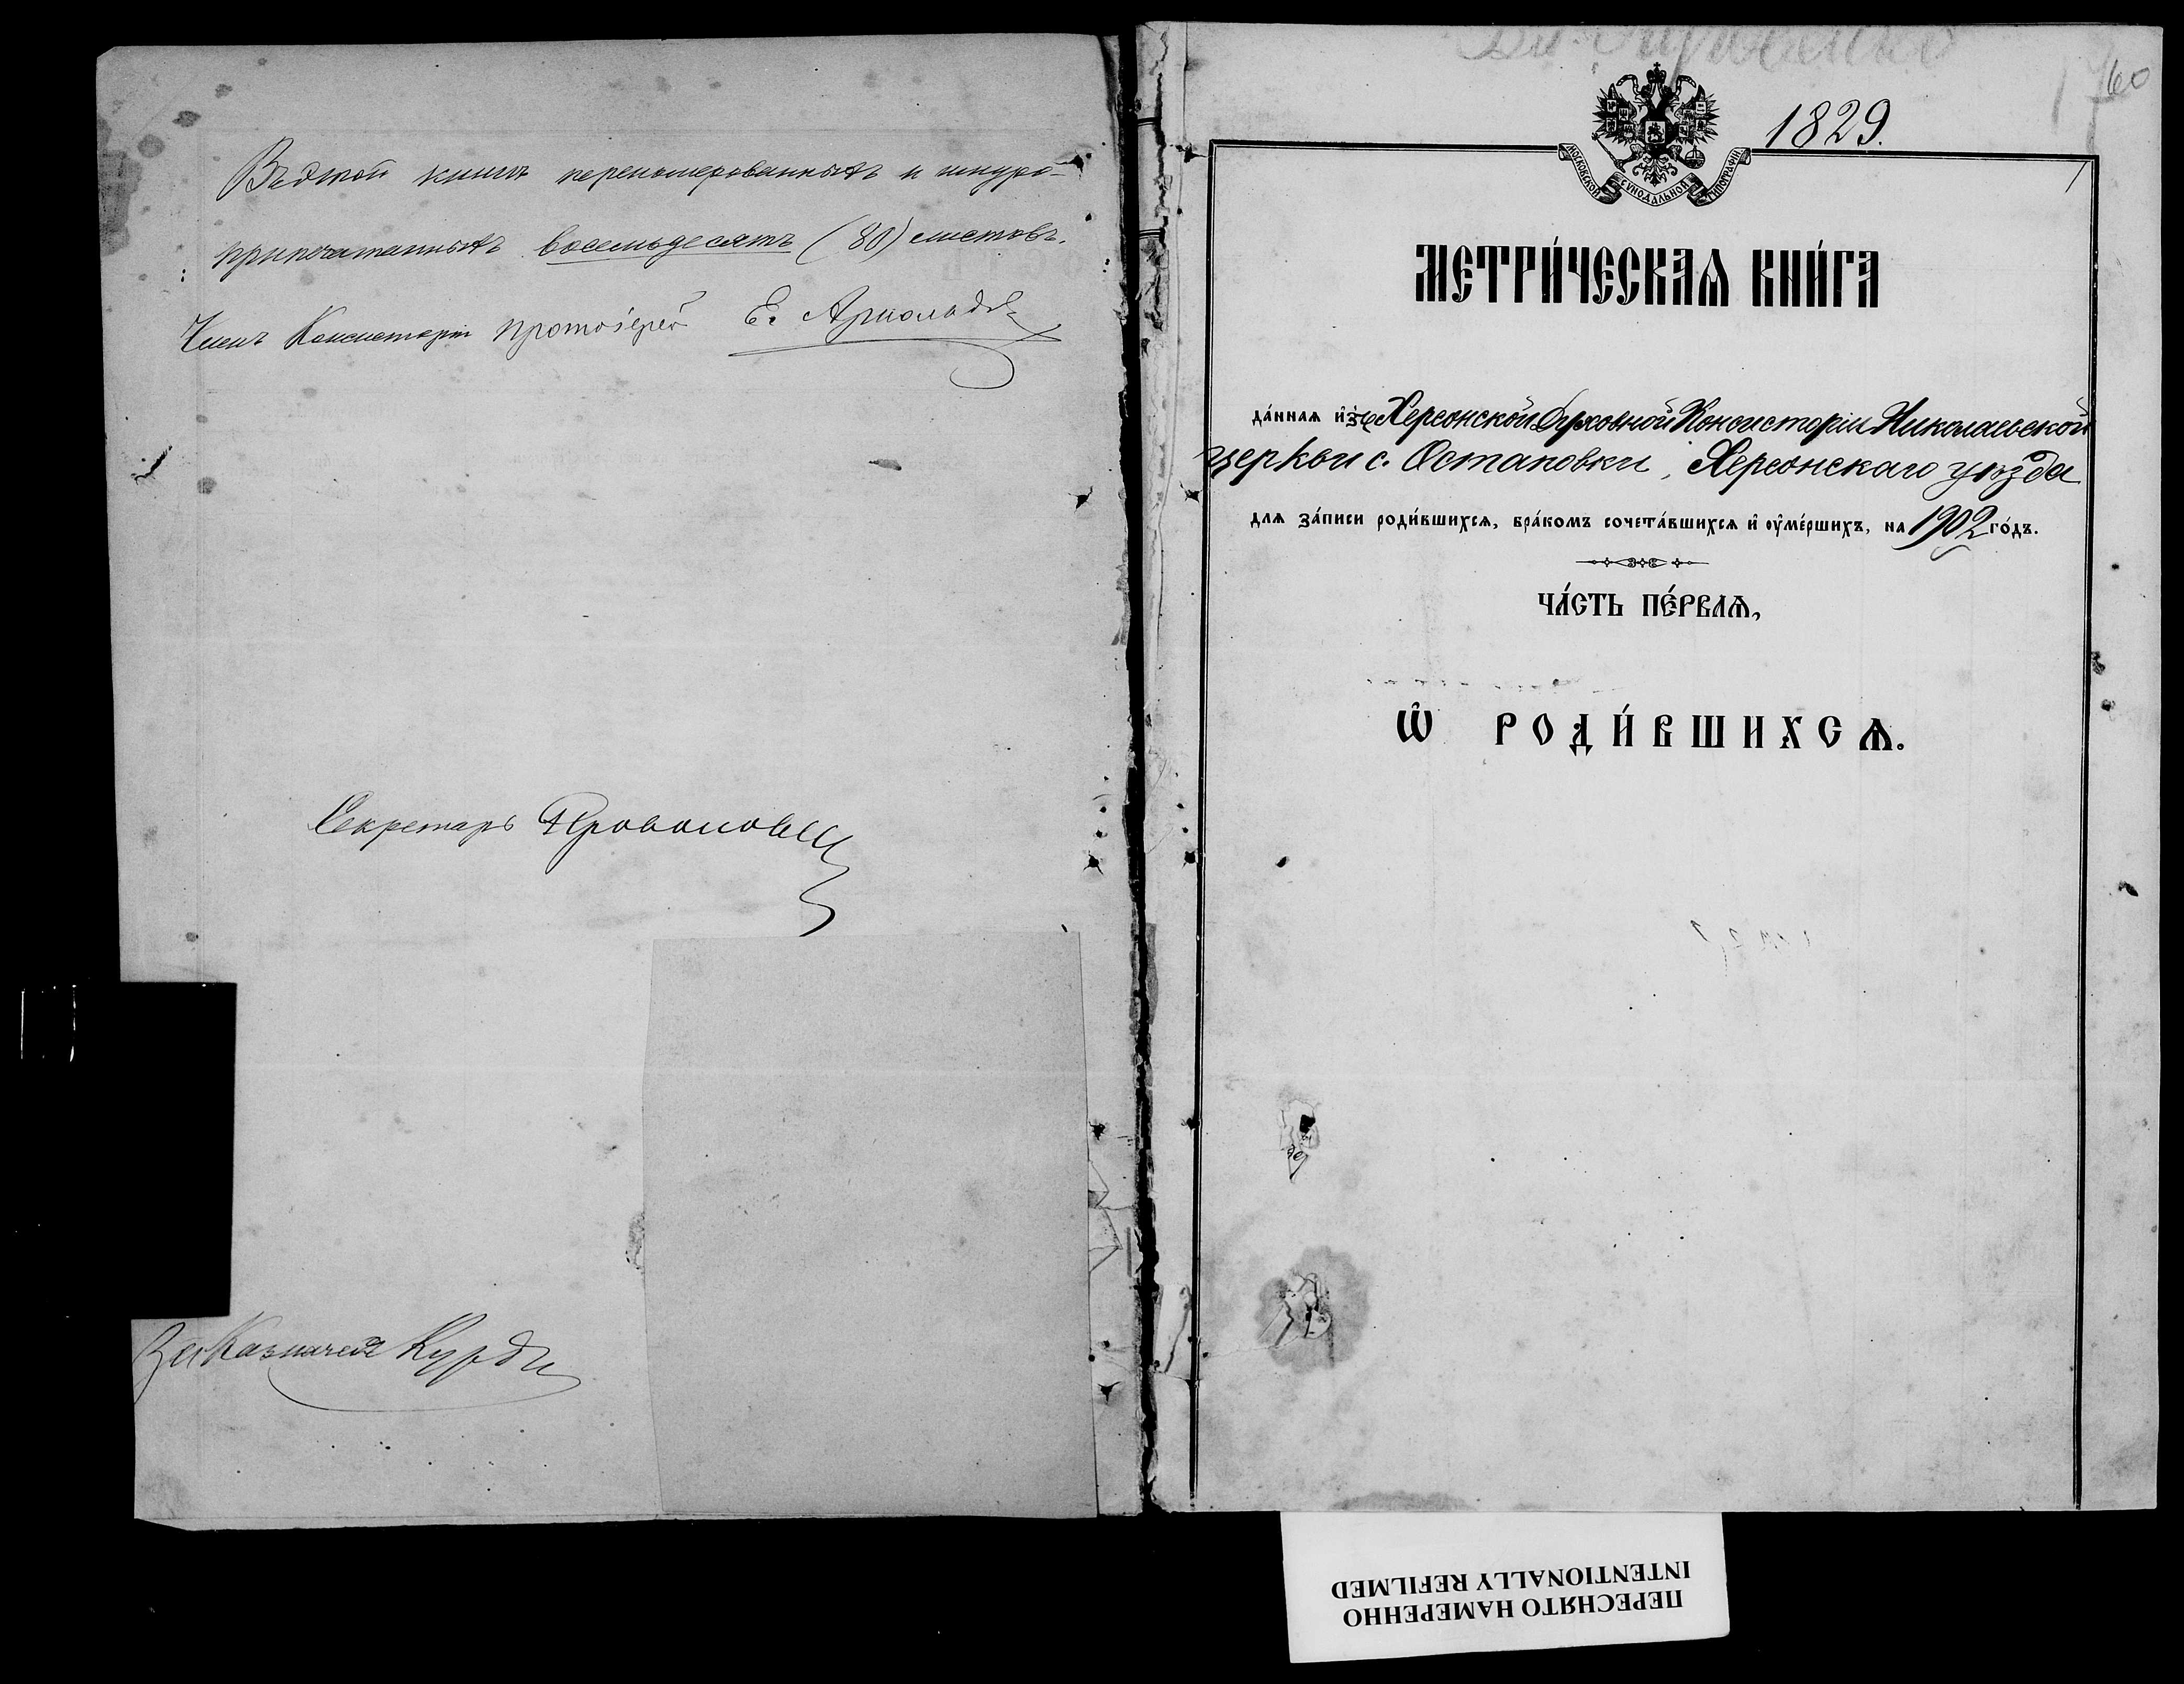 Въ этой книгѣ перенумерованныхъ и шнуро-
припечатанныхъ восемьдесятъ (80) листовъ.
Членъ Консисторіи Протоіерей Е. Арнольдъ
Секретарь
За Казначея
60
1829.
МОСКОВСКОЙ СѴНОДАЛЬНОЙ ТИПОГРАФІИ
1
МЕТРИ́ЧЕСКАѦ КНИ́ГА
да́ннаѧ и҆зъ Херсонской Духовной Консисторіи Николаевской
церкви с. Остаповки, Херсонскаго уѣзда
длѧ за́писи роди́вшихсѧ, бра́комъ сочета́вшихсѧ и҆ оу҆ме́ршихъ, на 1902 го́дъ.
ЧА́СТЬ ПЕ́РВАѦ,
Ѡ҆ РОДИ́ВШИХСѦ.
ПЕРЕСНЯТО НАМЕРЕННО
INTENTIONALLY REFILMED